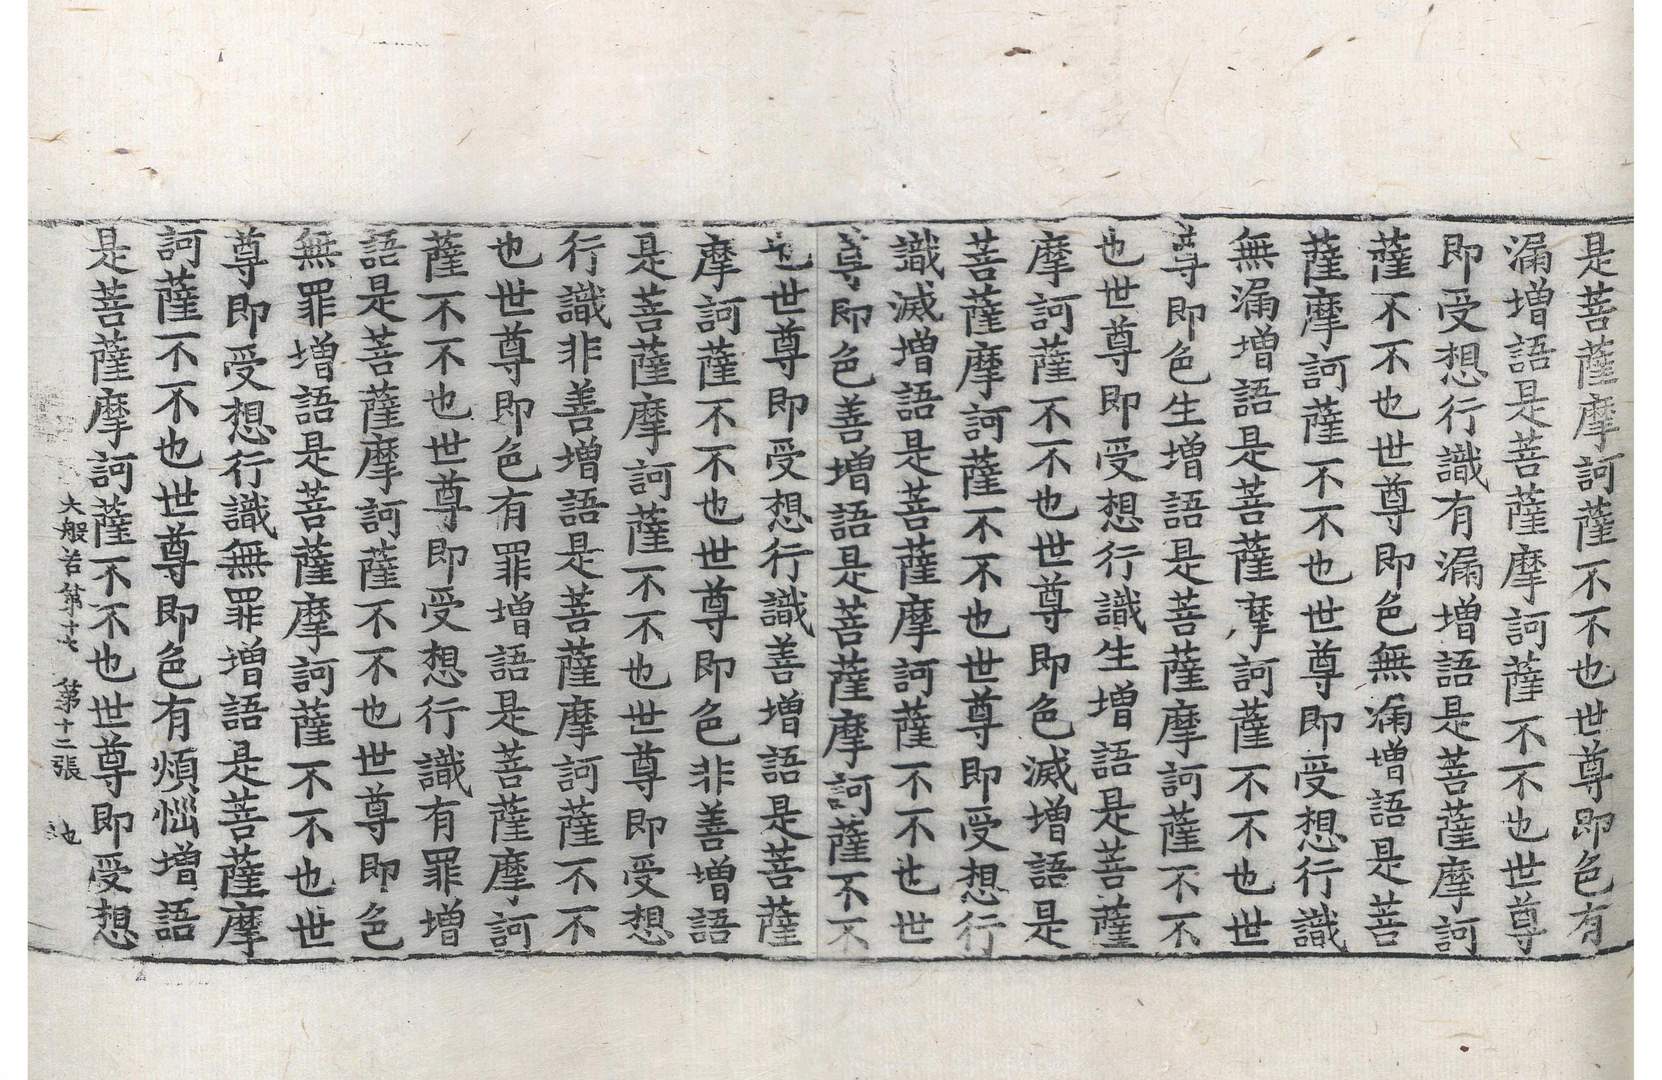 是菩薩摩訶薩不不也世尊即色有
漏增語是菩薩摩訶薩不不也世尊
即受想行識有漏增語是菩薩摩訶
薩不不也世尊即色無漏增語是菩
薩摩訶薩不不也世尊即受想行識
無漏增語是菩薩摩訶薩不不也世
尊即色生增語是菩薩摩訶薩不不
也世尊即受想行識生增語是菩薩
摩訶薩不不也世尊即色滅增語是
菩薩摩訶薩不不也世尊即受想行
識滅增語是菩薩摩訶薩不不也世
尊即色善增語是菩薩摩訶薩不不
也世尊即受想行識善增語是菩薩
摩訶薩不不也世尊即色非善增語
是菩薩摩訶薩不不也世尊即受想
行識非善增語是菩薩摩訶薩不不
也世尊即色有罪增語是菩薩摩訶
薩不不也世尊即受想行識有罪增
語是菩薩摩訶薩不不也世尊即色
無罪增語是菩薩摩訶薩不不也世
尊即受想行識無罪增語是菩薩摩
訶薩不不也世尊即色有煩惱增語
是菩薩摩訶薩不不也世尊即受想
大般若第十七 第十二張 地